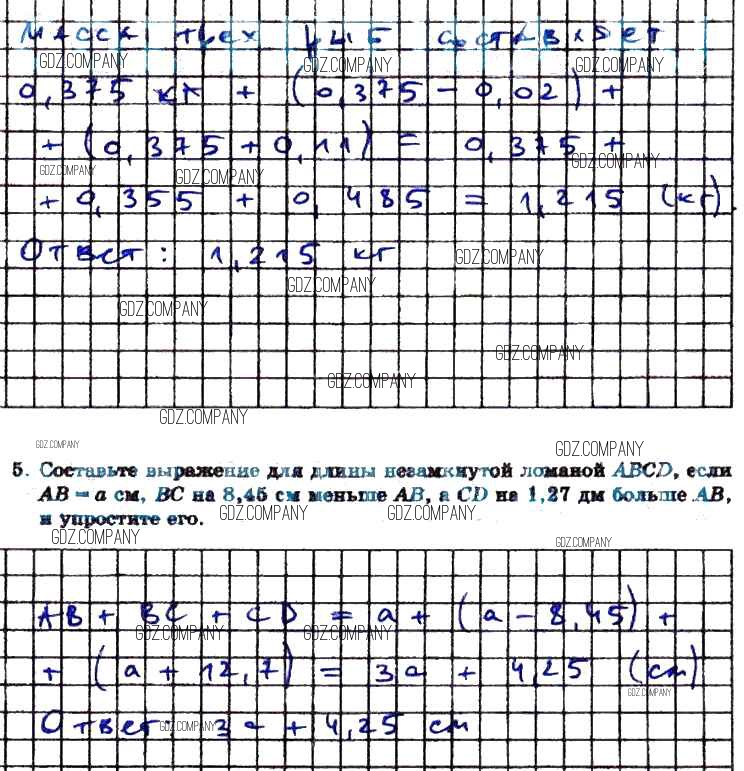 Масса трех щук составляет
GDZ.COMPANY GDZ.COMPANY GDZ.COMPANY
0,375 кг + (0,375 - 0,02) +
+ (0,375 + 0,11) = 0,375 +
GDZ.COMPANY GDZ.COMPANY GDZ.COMPANY
+ 0,355 + 0,485 = 1,215 (кг).
Ответ: 1,215 кг
GDZ.COMPANY
GDZ.COMPANY
GDZ.COMPANY
GDZ.COMPANY
GDZ.COMPANY
GDZ.COMPANY
GDZ.COMPANY GDZ.COMPANY
5. Составьте выражение для длины незамкнутой ломаной ABCD, если
AB = a см, BC на 8,45 см меньше AB, а CD на 1,27 дм больше AB,
и упростите его.
GDZ.COMPANY GDZ.COMPANY
GDZ.COMPANY
AB + BC + CD = a + (a - 8,45) +
GDZ.COMPANY GDZ.COMPANY
+ (a + 12,7) = 3a + 4,25 (см)
GDZ.COMPANY
Ответ: 3a + 4,25 см
GDZ.COMPANY